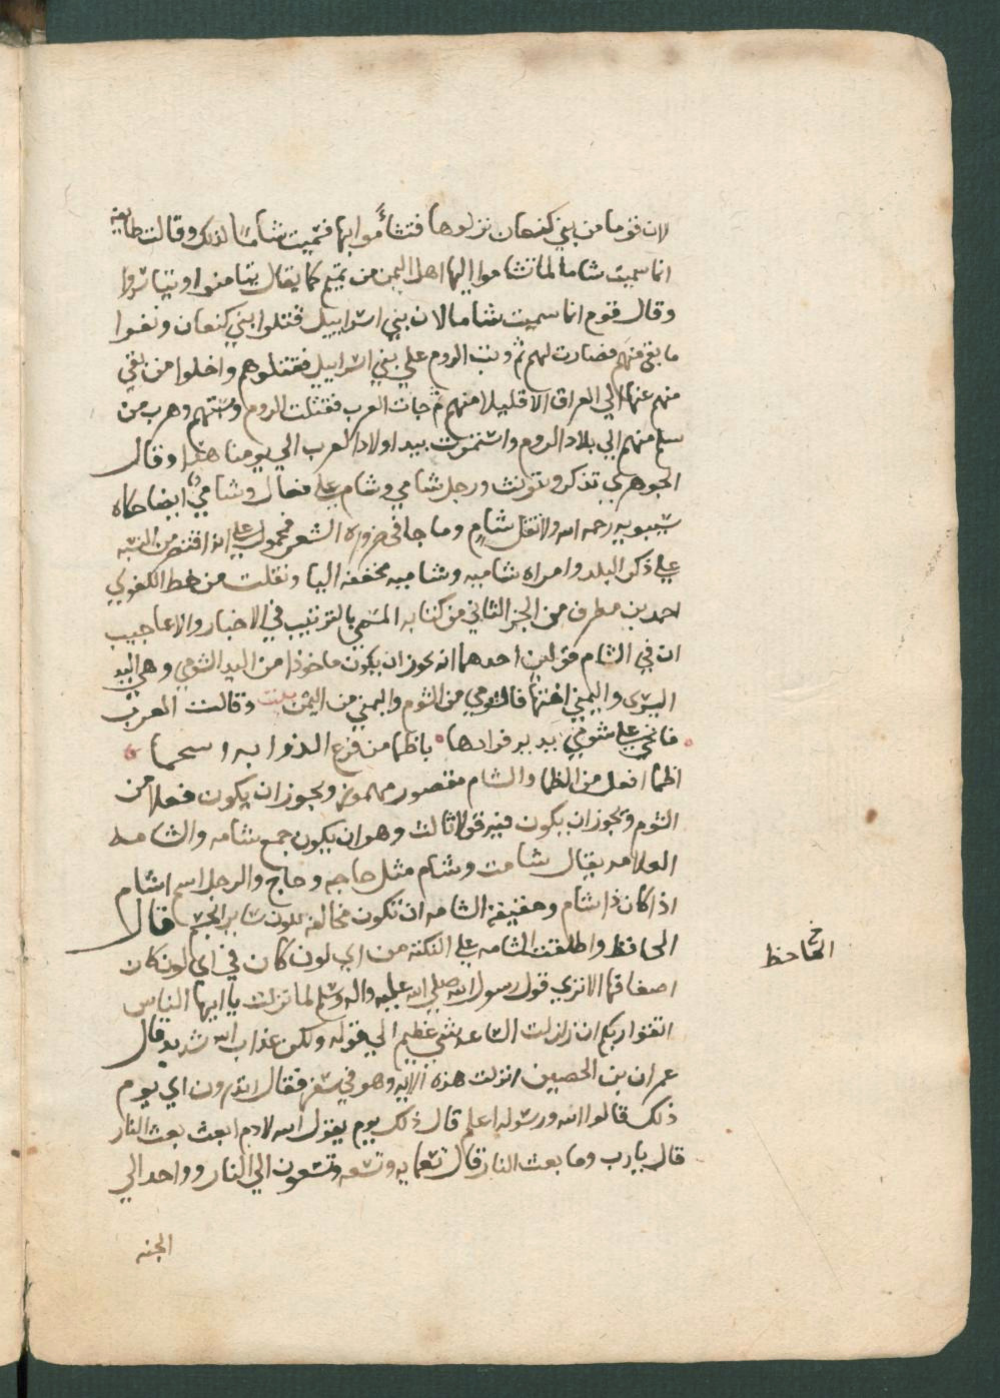 لان قوما من بني كنعان نزلوها فتشأموا بها فسميت شاما لذلك وقالت طايفه
انما سميت شاما لما تشاموا اليها اهل اليمن من يمنهم كما يقال يتامنوا او يتياسروا
وقال قوم انما سميت شاما لان بني اسراييل قتلوا بني كنعان ونفوا
ما بقى منهم فصارت لهم ثم وثبت الروم علي بني اسراييل فقتلوهم واجلوا من بقي
منهم عنها الي العراق الا قليلا منهم ثم جات العرب فقتلت الروم وشتتهم وهرب من
سلم منهم الي بلاد الروم واستمرت بيد اولاد العرب الي يومنا هذا وقال
الجوهري تذكر وتونث ورجل شامي وشام علي فعال وشامي ايضا حكاه
سيبويه رحمه الله ولا تقل شام وما جا في ضروره الشعر فمحمول علي انه اقتصر من النسبه
علي ذكر البلد وامراه شاميه وشاميه مخففه اليا ونقلت من خط اللغوي
احمد بن مطرف من الجز الثاني من كتابه المسمي بالترتيب في الاخبار والاعاجيب
ان في الشام قولين احدهما انه يجوز ان يكون ماخوذا من اليد الشومي وهي اليد
اليسرى واليمني اختها فالشومي من الشوم واليمني من اليمن بيت وقالت العرب
فانحي علي شومي يديه فرادها باظما من فرع الدوابه اسحما
اظما افعل من الظما والشام مقصور مهموز ويجوز ان يكون فعلا من
الشوم ويجوز ان يكون فيه قولا ثالث وهو ان يكون جمع شامه والشامه
العلامه يقال شامت وشام مثل حاجه وحاج والرجل اسم اشام
اذا كان ذا شام وحقيقة الشامه ان تكون مخالفه للون ساير الجسم قال
الحافظ واطلقت الشامه علي النكته من اي لون كان في اي لون كان
اصغا قا الا ترى قول رسول الله صلي الله عليه واله وسلم لما نزلت يا ايها الناس
اتقوا ربكم ان زلزلت الساعه شي عظيم الي قوله ولكن عذاب الله شديد قال
عمران بن الحصين انزلت هذه الايه وهو في سفر فقال اتدرون اي يوم
ذلك قالوا الله ورسوله اعلم قال ذلك يوم يقول الله لادم ابعث بعث النار
قال يارب وما بعث النار قال تسعمايه وتسعه وتسعون الي النار وواحد الي
الجنه
الجاحظ